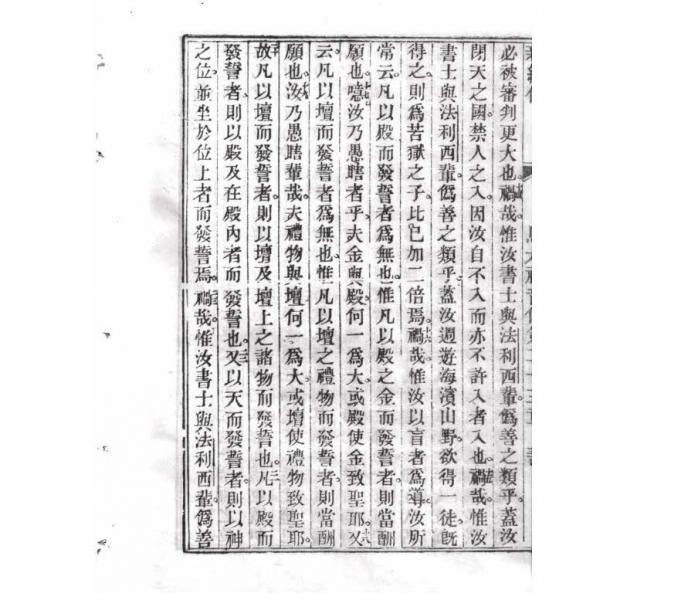 必被審判更大也禍哉惟汝書士與法利西輩僞善之類乎蓋汝
閉天之國禁人之入因汝自不入而亦不許入者入也禍哉惟汝
書士與法利西輩僞善之類乎蓋汝週遊海濱山野欲得一徒旣
得之則爲苦獄之子比已加二倍焉十六禍哉惟汝以盲者爲導汝所
常云凡以殿而發誓者爲無也惟凡以殿之金而發誓者則當酬
願也十七噫汝乃愚瞎者乎夫金與殿何一爲大或殿使金致聖耶十八又
云凡以壇而發誓者爲無也惟凡以壇之禮物而發誓者則當酬
願也汝乃愚瞎輩哉夫禮物與壇何一爲大或壇使禮物致聖耶
故凡以壇而發誓者則以壇及壇上之諸物而發誓也凡以殿而
發誓者則以殿及在殿內者而發誓也又以天而發誓者則以神
之位並坐於位上者而發誓焉禍哉惟汝書士與法利西輩僞善